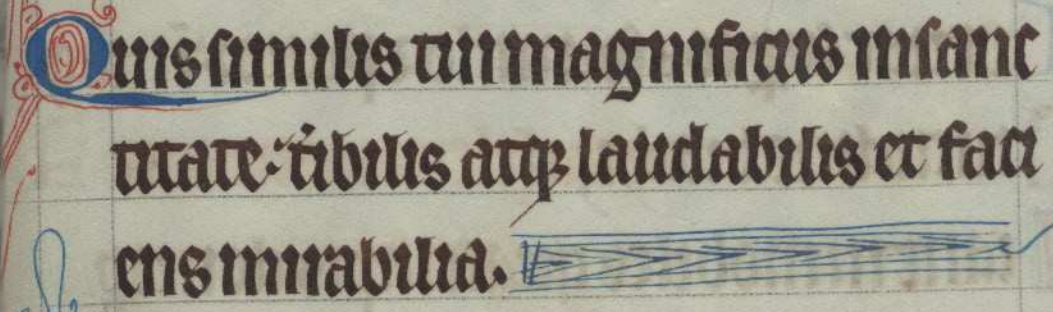 Quis similis tui magnificus insanc
titate: t᷑ibilis atqꝫ laudabilis et faci
ens mirabilia.